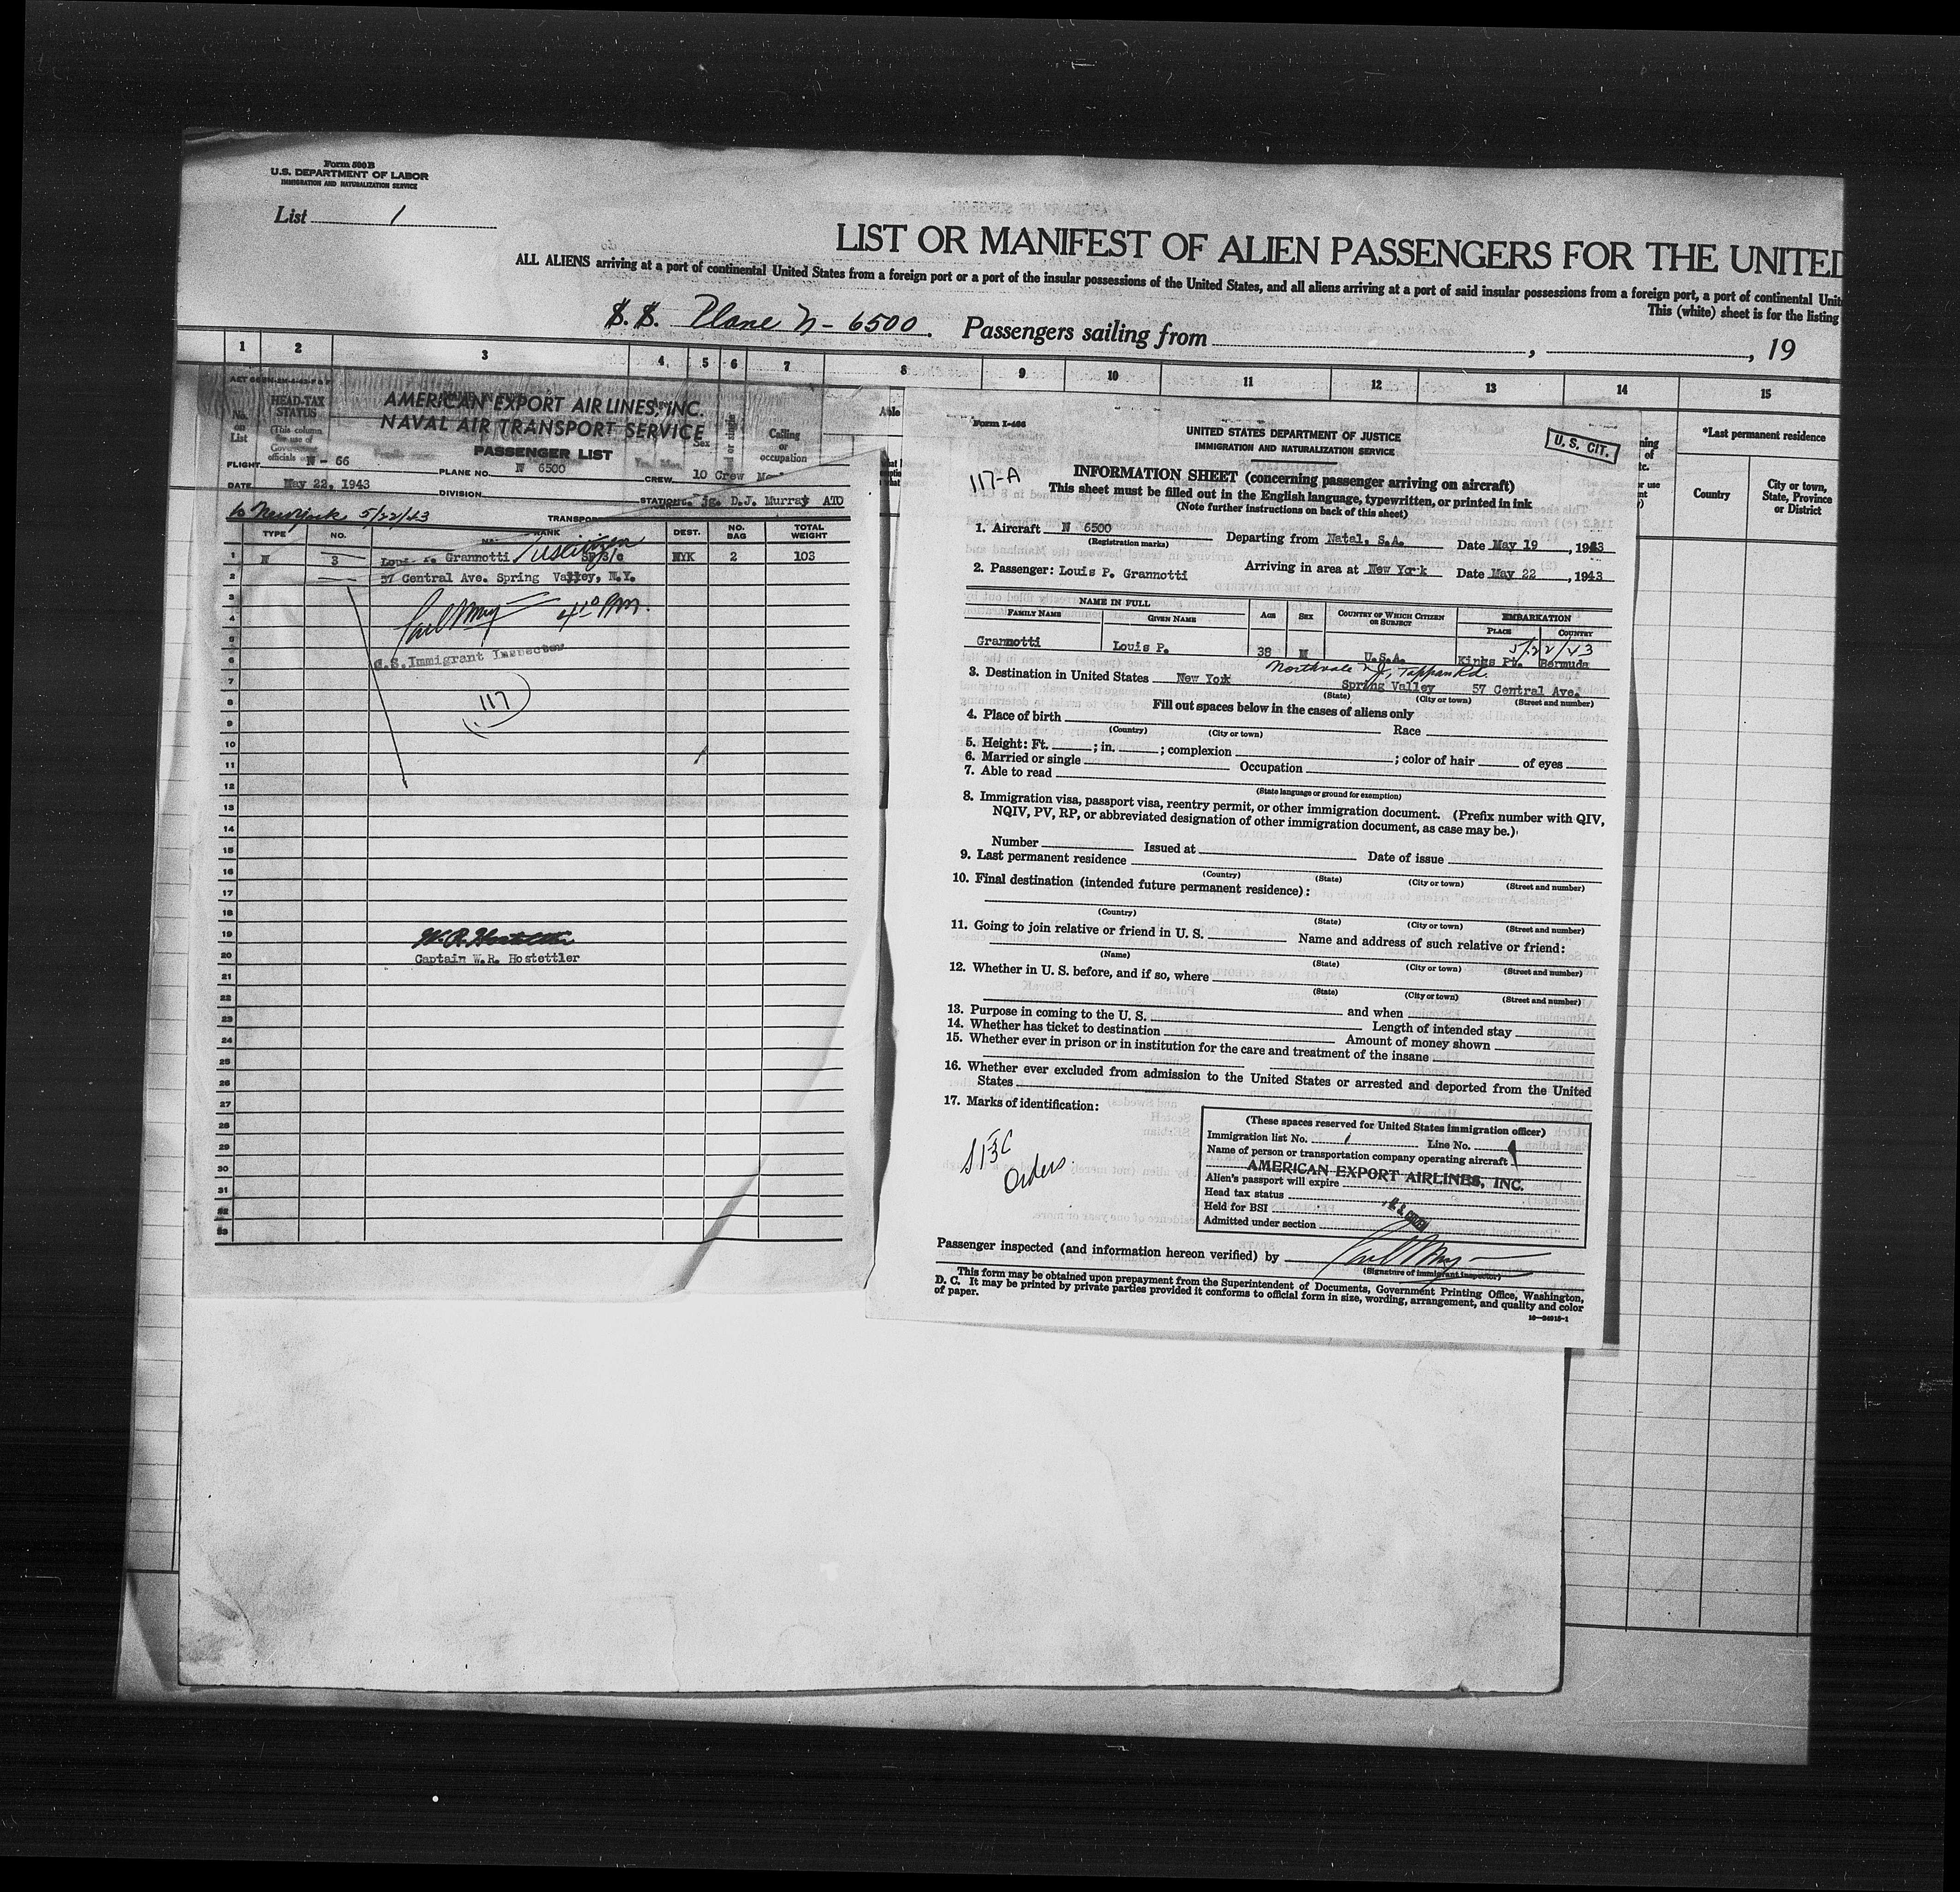 Form 500 B
U.S. DEPARTMENT OF LABOR
IMMIGRATION AND NATURALIZATION SERVICE
List 1
LIST OR MANIFEST OF ALIEN PASSENGERS FOR THE UNITED
ALL ALIENS arriving at a port of continental United States from a foreign port or a port of the insular possessions of the United States, and all aliens arriving at a port of said insular possessions from a foreign port, a port of continental Unit
This (white) sheet is for the listing
S.S. Plane N-6500. Passengers sailing from , , 19
1 2 3 4 5 6 7 8 9 10 11 12 13 14 15
No. on List
HEAD-TAX STATUS
(This column for use of Government officials
Sex
Calling or occupation
*Last permanent residence
Country
City or town, State, Province or District
AMERICAN EXPORT AIRLINES, INC.
NAVAL AIR TRANSPORT SERVICE
PASSENGER LIST
FLIGHT N-66 PLANE NO. N 6500 CREW 10 Crew
DATE May 22, 1943 DIVISION STATION Jg. D.J. Murray ATO
to New York 5/22/43
TYPE NO. RANK DEST. NO. BAG TOTAL WEIGHT
1 N 3 Louis P. Grannotti / US citizen Sp3/c NYK 2 103
2 57 Central Ave. Spring Valley, N.Y.
3
4 Earl May 4:10 PM.
5
6 U.S. Immigrant Inspector
7
8 117
9
10
11
12
13
14
15
16
17
18
19 W.R. Hostettler
20 Captain W.R. Hostettler
21
22
23
24
25
26
27
28
29
30
31
32
33
Form I-466
UNITED STATES DEPARTMENT OF JUSTICE
IMMIGRATION AND NATURALIZATION SERVICE
U. S. CIT.
117-A
INFORMATION SHEET (concerning passenger arriving on aircraft)
This sheet must be filled out in the English language, typewritten, or printed in ink
(Note further instructions on back of this sheet)
1. Aircraft N 6500 Departing from Natal, S.A. Date May 19, 1943
(Registration marks)
2. Passenger: Louis P. Grannotti Arriving in area at New York Date May 22, 1943
NAME IN FULL AGE SEX COUNTRY OF WHICH CITIZEN OR SUBJECT EMBARKATION
FAMILY NAME GIVEN NAME PLACE COUNTRY
5/22/43
Grannotti Louis P. 38 M U.S.A. Kinks Pt. Bermuda
Northvale NJ, Tappan Rd.
3. Destination in United States New York Spring Valley 57 Central Ave.
(State) (City or town) (Street and number)
Fill out spaces below in the cases of aliens only
4. Place of birth Race
(Country) (City or town)
5. Height: Ft. ; in. ; complexion ; color of hair of eyes
6. Married or single Occupation
7. Able to read
(State language or ground for exemption)
8. Immigration visa, passport visa, reentry permit, or other immigration document. (Prefix number with QIV,
NQIV, PV, RP, or abbreviated designation of other immigration document, as case may be.)
Number Issued at Date of issue
9. Last permanent residence
(Country) (State) (City or town) (Street and number)
10. Final destination (intended future permanent residence):
(Country) (State) (City or town) (Street and number)
11. Going to join relative or friend in U. S. Name and address of such relative or friend:
(Name) (State) (City or town) (Street and number)
12. Whether in U. S. before, and if so, where
(State) (City or town) (Street and number)
and when
13. Purpose in coming to the U. S. Length of intended stay
14. Whether has ticket to destination Amount of money shown
15. Whether ever in prison or in institution for the care and treatment of the insane
16. Whether ever excluded from admission to the United States or arrested and deported from the United
States
17. Marks of identification:
Orders.
(These spaces reserved for United States immigration officer)
Immigration list No. 1 Line No. 1
Name of person or transportation company operating aircraft
AMERICAN EXPORT AIRLINES, INC.
Alien's passport will expire
Head tax status
Held for BSI
Admitted under section
Passenger inspected (and information hereon verified) by Earl May
(Signature of immigrant inspector)
This form may be obtained upon prepayment from the Superintendent of Documents, Government Printing Office, Washington,
D. C. It may be printed by private parties provided it conforms to official form in size, wording, arrangement, and quality and color
of paper.
16-24915-1